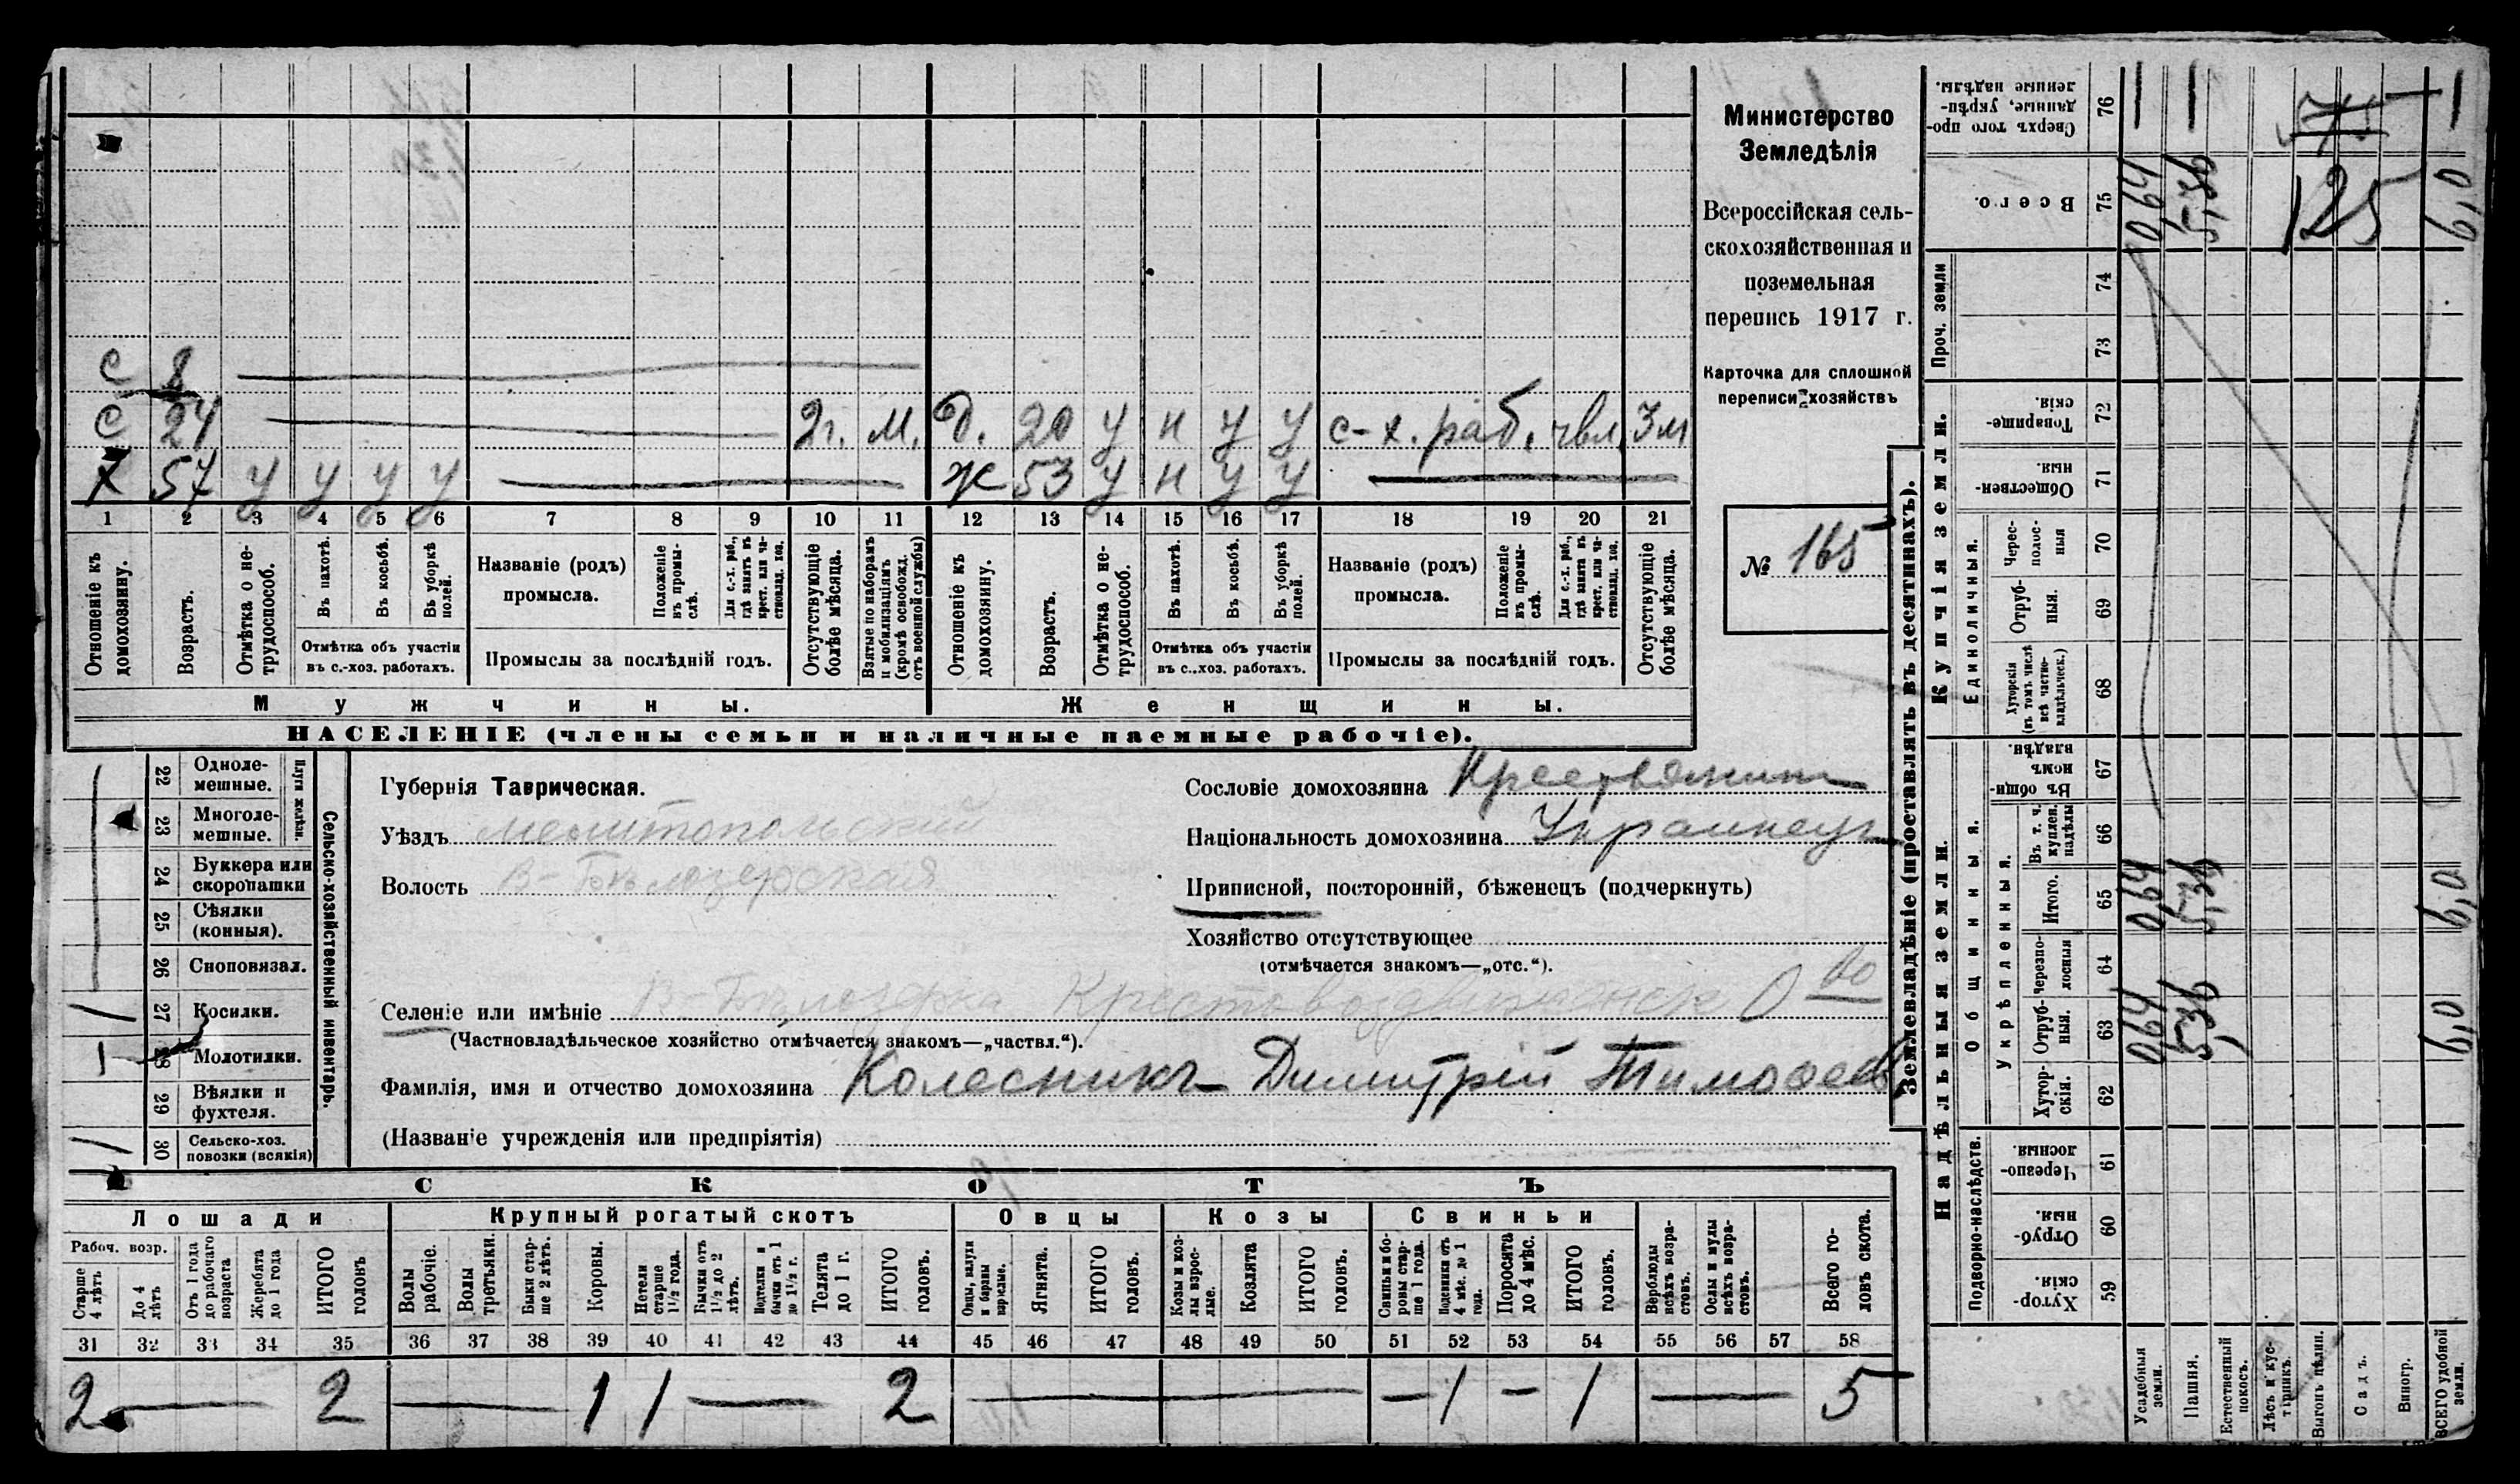 Министерство
Земледѣлія
Всероссійская сель-
скохозяйственная и
поземельная
перепись 1917 г.
Карточка для сплошной
переписи хозяйствъ
№ 165
с 8
с 24 2г. м. д. 20 у н у у с-х. раб. чвл. 3м
х 57 у у у у ж 53 у н у у
1 2 3 4 5 6 7 8 9 10 11 12 13 14 15 16 17 18 19 20 21
Отношеніе къ домохозяину.
Возрастъ.
Отмѣтка о не-трудоспособ.
Въ пахотѣ.
Въ косьбѣ.
Въ уборкѣ полей.
Отмѣтка объ участіи
въ с.-хоз. работахъ.
Названіе (родъ)
промысла.
Положеніе въ промы-слѣ.
Для с.-х. раб., гдѣ занятъ въ крест. или ча-ствовлад. хоз.
Промыслы за послѣдній годъ.
Отсутствующіе болѣе мѣсяца.
Взятые по наборамъ и мобилизаціямъ (кромѣ освобожд. отъ военной службы)
Отношеніе къ домохозяину.
Возрастъ.
Отмѣтка о не-трудоспособ.
Въ пахотѣ.
Въ косьбѣ.
Въ уборкѣ полей.
Отмѣтка объ участіи
въ с..хоз. работахъ.
Названіе (родъ)
промысла.
Положеніе въ промы-слѣ.
Для с.-х. раб., гдѣ занята въ крест. или ча-ствовлад. хоз.
Промыслы за послѣдній годъ.
Отсутствующіе болѣе мѣсяца.
Мужчины.
Женщины.
НАСЕЛЕНІЕ (члены семьи и наличные наемные рабочіе).
22 Одноле-мешные.
23 Многоле-мешные.
Плуги желѣзн.
24 Буккера или скоропашки
25 Сѣялки (конныя).
26 Сноповязал.
27 Косилки. 1
28 Молотилки. 1
29 Вѣялки и фухтеля.
30 Сельско-хоз. повозки (всякія) 1
Сельско-хозяйственный инвентарь.
Губернія Таврическая.
Уѣздъ Мелитопольский
Волость В-Бѣлозерская
Сословіе домохозяина Крестьянин
Національность домохозяина Украинецъ
Приписной, посторонній, бѣженецъ (подчеркнуть)
Хозяйство отсутствующее
(отмѣчается знакомъ—„отс.“).
Селеніе или имѣніе В-Бѣлозерка Крестовоздвиженск О во
(Частновладѣльческое хозяйство отмѣчается знакомъ—„частвл.“).
Фамилія, имя и отчество домохозяина Колесникъ Димитрій Тимофеев
(Названіе учрежденія или предпріятія)
СКОТЪ
Лошади
Крупный рогатый скотъ
Овцы
Козы
Свиньи
Рабоч. возр.
Старше 4 лѣтъ
До 4 лѣтъ
Отъ 1 года до рабочаго возраста
Жеребята до 1 года
ИТОГО головъ
Волы рабочіе.
Волы третьяки.
Быки стар-ше 2 лѣтъ.
Коровы.
Нетели старше 1½ года.
Бычки отъ 1½ до 2 лѣтъ.
Подтелки и бычки отъ 1 до 1½ г.
Телята до 1 г.
ИТОГО головъ.
Овцы, валухи и бараны взрослые.
Ягнята.
ИТОГО головъ.
Козы и коз-лы взрос-лые.
Козлята
ИТОГО головъ.
Свиньи и бо-ровы стар-ше 1 года.
Подсвинки отъ 4 мѣс. до 1 года.
Поросята до 4 мѣс.
ИТОГО головъ.
Верблюды всѣхъ возра-стовъ.
Ослы и мулы всѣхъ возра-стовъ.
Всего го-ловъ скота.
31 32 33 34 35 36 37 38 39 40 41 42 43 44 45 46 47 48 49 50 51 52 53 54 55 56 57 58
2 — 2 — 1 1 — 2 — — 1 — 1 — 5
Землевладѣніе (проставлять въ десятинахъ).
Надѣльныя земли.
Купчія земли.
Проч. земли
Подворно-наслѣдств.
Общинныя.
Укрѣпленныя.
Единоличныя.
Хутор-скія. 59
Отруб-ныя. 60
Черезпо-лосныя. 61
Хутор-скія. 62
Отруб-ныя. 63
Черезпо-лосныя 64
Итого. 65
Въ т. ч. куплен. надѣлы 66
Въ общин-номъ владѣн. 67
Хуторскія (въ томъ числѣ всѣ частно-владѣльческ.) 68
Отруб-ныя. 69
Черес-полос-ныя 70
Обществен-ныя. 71
Товарище-скія. 72
73
74
Всего. 75
Сверхъ того про-данные, укрѣп-ленные надѣлы. 76
Усадебныя земли. 0,64 0,64 0,64 —
Пашня. 5,36 5,36 5,36 —
Естественный покосъ.
Лѣсъ и кус-тарникъ.
Выгонъ цѣлин.
Садъ.
Виногр.
ВСЕГО удобной земли. 6,0 6,0 6,0 —
125